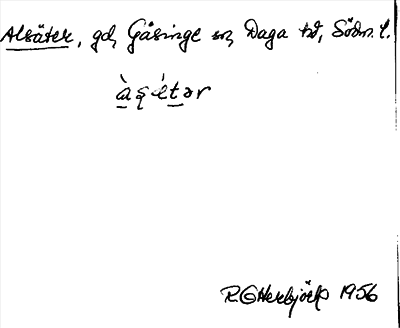 Alsäter, gd, Gåsinge sn, Daga hd, Södm. l.
R. Otterbjörk 1956